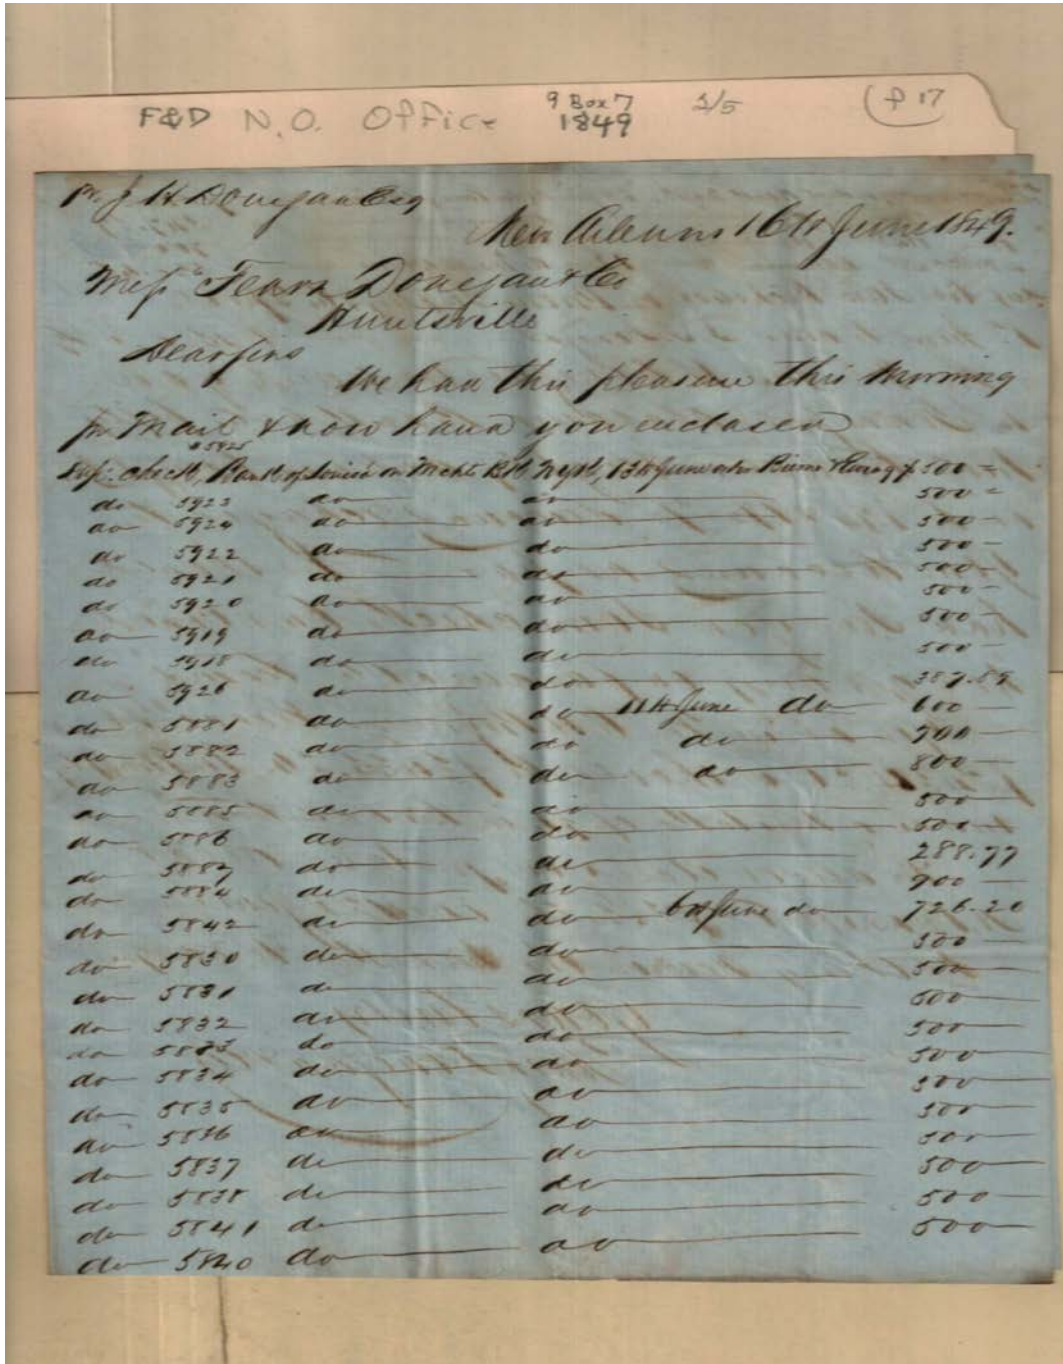 F&D N.O. Office 9 Box 7 1849 2/5 (p 17
Pr. J H Donegan Esq
New Orleans 16th June 1849.
Mess Fearn Donegan & Co
Huntsville
Dear Sirs
We had this pleasure this morning
pr Mail & now hand you enclosed
#5925
Dup. check, Bank of Louisa on Mchts Bk NYork, 13th June 500 =
do 5923 do do 500 =
do 5924 do do 500 —
do 5922 do do 500 —
do 5921 do do 500 —
do 5920 do do 500 —
do 5919 do do 500 —
do 5918 do do 500 —
do 5926 do do 387.89
do 5881 do do 11th June do 600 —
do 5882 do do do 700 —
do 5883 do do do 800 —
do 5885 do do 500 —
do 5886 do do 500 —
do 5887 do do 288.77
do 5884 do do 900 —
do 5842 do do 6th June do 726.20
do 5830 do do 500 —
do 5831 do do 500 —
do 5832 do do 500 —
do 5833 do do 500 —
do 5834 do do 500 —
do 5835 do do 500 —
do 5836 do do 500 —
do 5837 do do 500 —
do 5838 do do 500 —
do 5841 do do 500 —
do 5840 do do 500